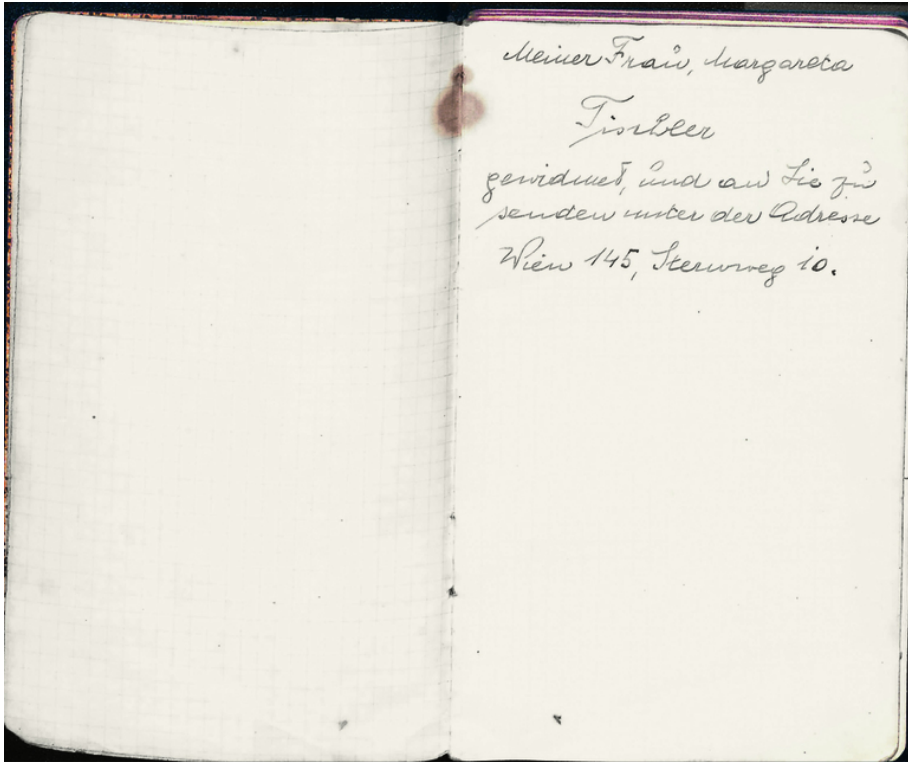 Meiner Frau, Margareta
Tischler
gewidmet, und an Sie zu
senden unter der Adresse
Wien 145, Sternweg 10.